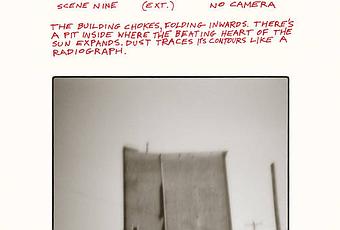 SCENE NINE (EXT.) NO CAMERA
THE BUILDING CHOKES, FOLDING INWARDS. THERE'S
A PIT INSIDE WHERE THE BEATING HEART OF THE
SUN EXPANDS. DUST TRACES ITS CONTOURS LIKE A
RADIOGRAPH.